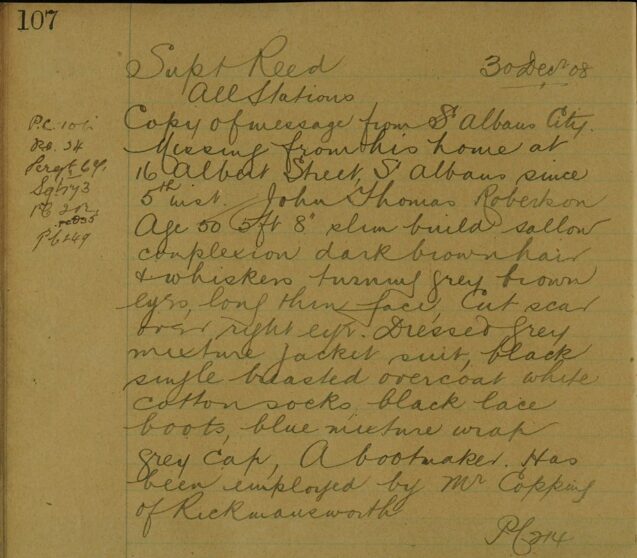 107
Supt Reed 30 Decr 08
All Stations
P.C. 101
Copy of message from St Albans City.
Missing from his home at
Sergt 64
16 Albert Street, St Albans, since
5th inst. John Thomas Robertson
Age 50 5ft 8" slim build sallow
PC 249
complexion dark brown hair
& whiskers turning grey brown
eyes, long thin face, Cut scar
over right eye. Dressed grey
mixture jacket suit, black
single breasted overcoat white
cotton socks black lace
boots, blue mixture wrap
grey Cap, A bootmaker. Has
been employed by Mr Copping
of Rickmansworth
PC 214